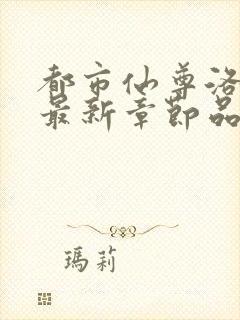 都市仙尊洛
最新章节品
瑪莉